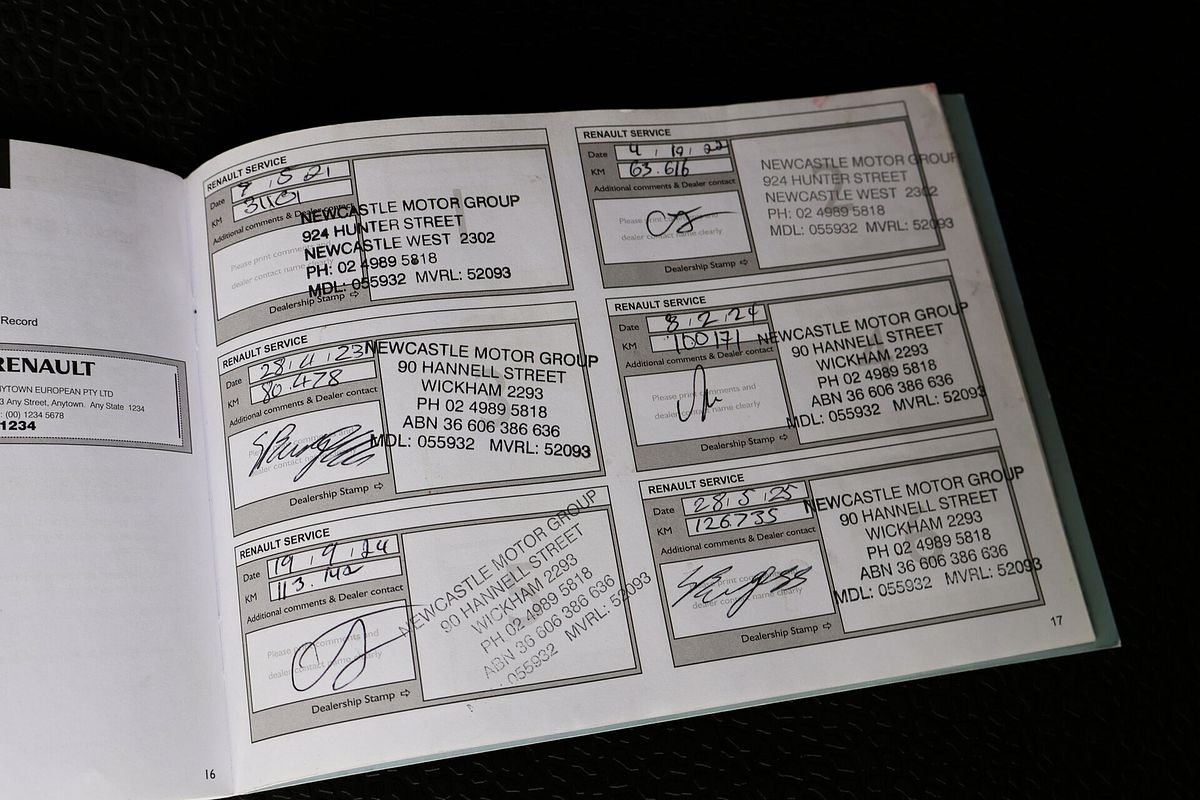 Record
RENAULT
NYTOWN EUROPEAN PTY LTD
3 Any Street, Anytown. Any State 1234
: (00) 1234 5678
1234
16
RENAULT SERVICE
Date 7 . 5 . 21
KM 31131
Additional comments & Dealer contact
Please print comments
dealer contact name clearly
Dealership Stamp ⇨
NEWCASTLE MOTOR GROUP
924 HUNTER STREET
NEWCASTLE WEST 2302
PH: 02 4989 5818
MDL: 055932 MVRL: 52093
RENAULT SERVICE
Date 4 . 10 . 22
KM 63.616
Additional comments & Dealer contact
Please print comments and
dealer contact name clearly
Dealership Stamp ⇨
NEWCASTLE MOTOR GROUP
924 HUNTER STREET
NEWCASTLE WEST 2302
PH: 02 4989 5818
MDL: 055932 MVRL: 52093
RENAULT SERVICE
Date 28 . 4 . 23
KM 80.478
Additional comments & Dealer contact
Dealership Stamp ⇨
NEWCASTLE MOTOR GROUP
90 HANNELL STREET
WICKHAM 2293
PH 02 4989 5818
ABN 36 606 386 636
MDL: 055932 MVRL: 52093
RENAULT SERVICE
Date 8 . 2 . 24
KM 100171
Additional comments & Dealer contact
Please print comments and
dealer contact name clearly
Dealership Stamp ⇨
NEWCASTLE MOTOR GROUP
90 HANNELL STREET
WICKHAM 2293
PH 02 4989 5818
ABN 36 606 386 636
MDL: 055932 MVRL: 52093
RENAULT SERVICE
Date 19 . 9 . 24
KM 113.142
Additional comments & Dealer contact
Please print comments and
dealer contact name clearly
Dealership Stamp ⇨
NEWCASTLE MOTOR GROUP
90 HANNELL STREET
WICKHAM 2293
PH 02 4989 5818
ABN 36 606 386 636
: 055932 MVRL: 52093
RENAULT SERVICE
Date 28 . 5 . 25
KM 126735
Additional comments & Dealer contact
dealer contact name clearly
Dealership Stamp ⇨
NEWCASTLE MOTOR GROUP
90 HANNELL STREET
WICKHAM 2293
PH 02 4989 5818
ABN 36 606 386 636
MDL: 055932 MVRL: 52093
17